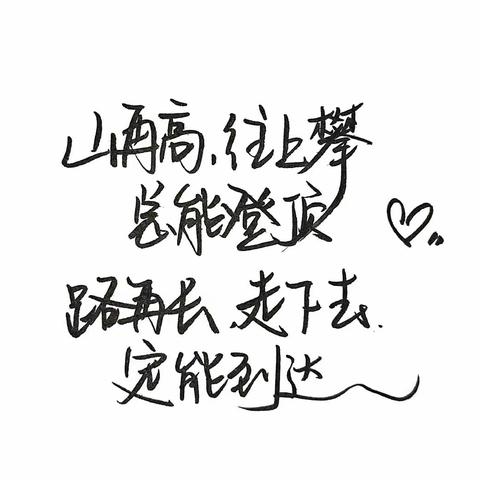 山再高,往上攀
总能登顶
路再长,走下去.
定能到达